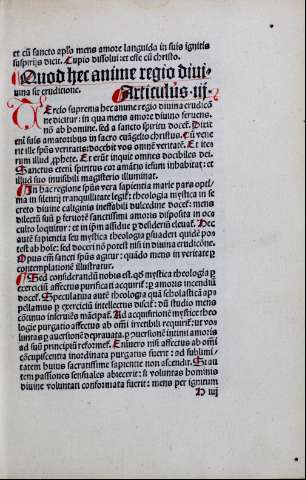 et cũ sancto aplo mens amore languida in suis ignitis
suspirijs dicit. Cupio dissolui: et esse cũ christo.
Quod hec anime regio diui-
na sit erudicione. Articulus .iij.
Uerclo suprema hec anime regio diuina erudicõe
ne dicitur: in qua mens amore diuino feruens,
nõ ab homine, sed a sancto spiritu docet̃. Dicit
em̃ suis amatoribus in sacro euãgelio christus. Cũ vene
rit ille spũs veritatis: docebit vos omnẽ veritatẽ. Et ite
rum illud ,pphete. Et erũt inquit omnes docibiles dei.
Sanctus etem̃ spiritus cor amãtis iesum inhabitat: et
illud suo inuisibili magisterio illuminat.
In hac regione spũs vera sapientia marie pars opti
ma in silentij tranquillitate legit̃: theologia mystica in se
creto diuine caliginis ineffabili dulcedine docet̃: mens
dilectũ suũ p̱ feruorẽ sanctissimi amoris disposita in oc
culto loquitur: et in ip̃m affidue p̱ desideriũ eleuat̃. Hec
autẽ sapientia seu mystica theologia p̱suaderi quidẽ po
test ab hoĩe: sed doceri nõ potest nisi in diuina erudicõne.
Opus em̃ sancti spũs agitur: quãdo mens in veritate p̱
contemplationẽ illustratur.
Sed considerandũ nobis est, q̃ mystica theologia p̱
exercitiũ affectus purificati acquirit̃: p̱ amoris incendiũ
docet̃. Speculatiua autẽ theologia quã scholasticã ap
pellamus p̱ exercitiũ intellectus discit̃: dũ studio mens
cõtinuo inseruẽs mãcipat̃. Ad acquisitionẽ mystice theo
logie purgatio affectus ab oĩni irretibili requirit̃: ut vo
luntas p̱ auersionẽ deprauata, p̱ uersionẽ intimi amoris
ad suũ principiũ reformet̃. Eniuero nisi affectus ab oĩni
cõcupiscentia inordinata purgatus fuerit: ad sublimi
tatem huius sacratissime sapientie non ascendit. Si au
tem passiones sensuales abiecerit: si voluntas hominis
diuine voluntati conformata fuerit: mens per ignitum